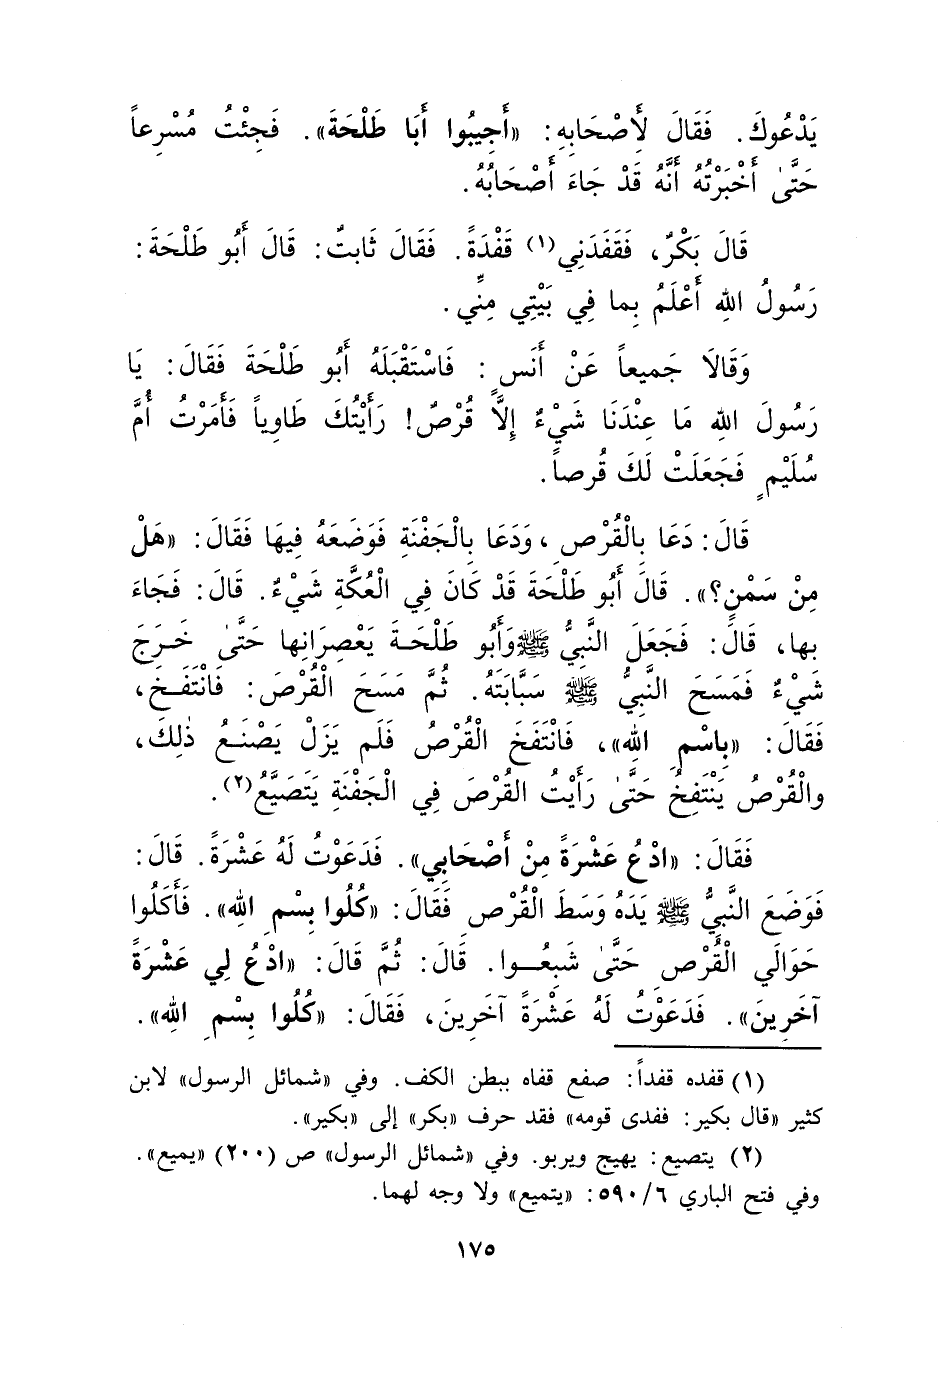 يَدْعُوكَ. فَقَالَ لأَصْحَابِهِ: «أَجِيبُوا أَبَا طَلْحَةَ». فَجِئْتُ مُسْرِعاً
حَتَّىٰ أَخْبَرْتُهُ أَنَّهُ قَدْ جَاءَ أَصْحَابُهُ.
قَالَ بَكْرٌ، فَقَفَدَنِي(١) قَفْدَةً. فَقَالَ ثَابتٌ: قَالَ أَبُو طَلْحَةَ:
رَسُولُ اللهِ أَعْلَمُ بِما فِي بَيْتِي مِنِّي.
وَقَالَا جَمِيعاً عَنْ أَنَسٍ: فَاسْتَقْبَلَهُ أَبُو طَلْحَةَ فَقَالَ: يَا
رَسُولَ اللهِ مَا عِنْدَنَا شَيْءٌ إِلاَّ قُرْصٌ! رَأَيْتُكَ طَاوِياً فَأَمَرْتُ أُمَّ
سُلَيْمٍ فَجَعَلَتْ لَكَ قُرصاً.
قَالَ: دَعَا بِالْقُرْصِ، وَدَعَا بِالْجَفْنَةِ فَوَضَعَهُ فِيهَا فَقَالَ: «هَلْ
مِنْ سَمْنٍ؟». قَالَ أَبُو طَلْحَةَ قَدْ كَانَ فِي الْعُكَّةِ شَيْءٌ. قَالَ: فَجَاءَ
بها، قَالَ: فَجَعَلَ النَّبِيُّ ﷺ وَأَبُو طَلْحَةَ يَعْصِرَانِها حَتَّىٰ خَرَجَ
شَيْءٌ فَمَسَحَ النَّبِيُّ ﷺ سَبَّابَتَهُ. ثُمَّ مَسَحَ الْقُرْصَ: فَانْتَفَخَ،
فَقَالَ: «بِاسْمِ اللهِ»، فَانْتَفَخَ الْقُرْصُ فَلَم يَزَلْ يَصْنَعُ ذٰلِكَ،
والْقُرْصُ يَنْتَفِخُ حَتَّىٰ رَأَيْتُ القُرْصَ فِي الْجَفْنَةِ يَتَصَيَّعُ(٢).
فَقَالَ: «ادْعُ عَشْرَةً مِنْ أَصْحَابِي». فَدَعَوْتُ لَهُ عَشْرَةً. قَالَ:
فَوَضَعَ النَّبِيُّ ﷺ يَدَهُ وَسَطَ الْقُرْصِ فَقَالَ: «كُلُوا بِسْمِ اللهِ». فَأَكَلُوا
حَوَالَي الْقُرْصِ حَتَّىٰ شَبِعُوا. قَالَ: ثُمَّ قَالَ: «ادْعُ لِي عَشْرَةً
آخَرِينَ». فَدَعَوْتُ لَهُ عَشْرَةً آخَرِينَ، فَقَالَ: «كُلُوا بِسْمِ اللهِ».
(١) قفده قفداً: صفع قفاه ببطن الكف. وفي «شمائل الرسول» لابن
كثير «قال بكير: ففدى قومه» فقد حرف «بكر» إلى «بكير».
(٢) يتصيع: يهيج ويربو. وفي «شمائل الرسول» ص (٢٠٠) «يميع».
وفي فتح الباري ٥٩٠/٦: «يتميع» ولا وجه لهما.
١٧٥